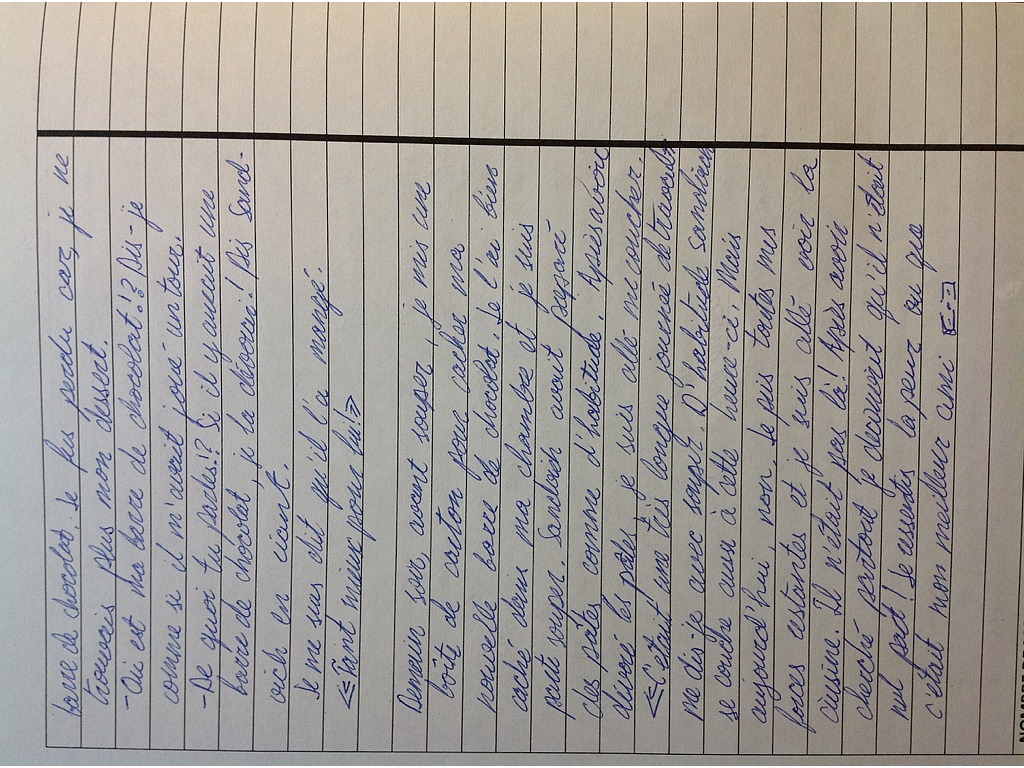 barre de chocolat. Je fus perdu car, je ne
trouvais plus mon dessert.
-Où est ma barre de chocolat!? Dis-je
comme si il m'avait joué un tour.
-De quoi tu parles!? Si il y avait une
barre de chocolat, je la dévorer! Dis Sand-
wich en riant.
Je me suis dit qu'il l'a mangé.
«Tant mieux pour lui!»
Demain soir, avant souper, je mis une
boîte de carton pour cacher ma
nouvelle barre de chocolat. Je l'ai bien
caché dans ma chambre et je suis
parti souper. Sandwich avait préparé
des pâtes comme d'habitude. Après avoir
dévoré les pâtes je suis allé me coucher.
«C'était une très longue journée de travail»
me dis-je avec songe. D'habitude Sandwich
se couche aux à cette heure-ci. Mais
aujourd'hui, non. Je pris toutes mes
forces restantes et je suis allé voir la
cuisine. Il n'était pas là! Après avoir
cherché partout je découvrit qu'il n'était
nul part! Je ressentis la peur vu que
c'était mon meilleur ami
NOMBRE DE